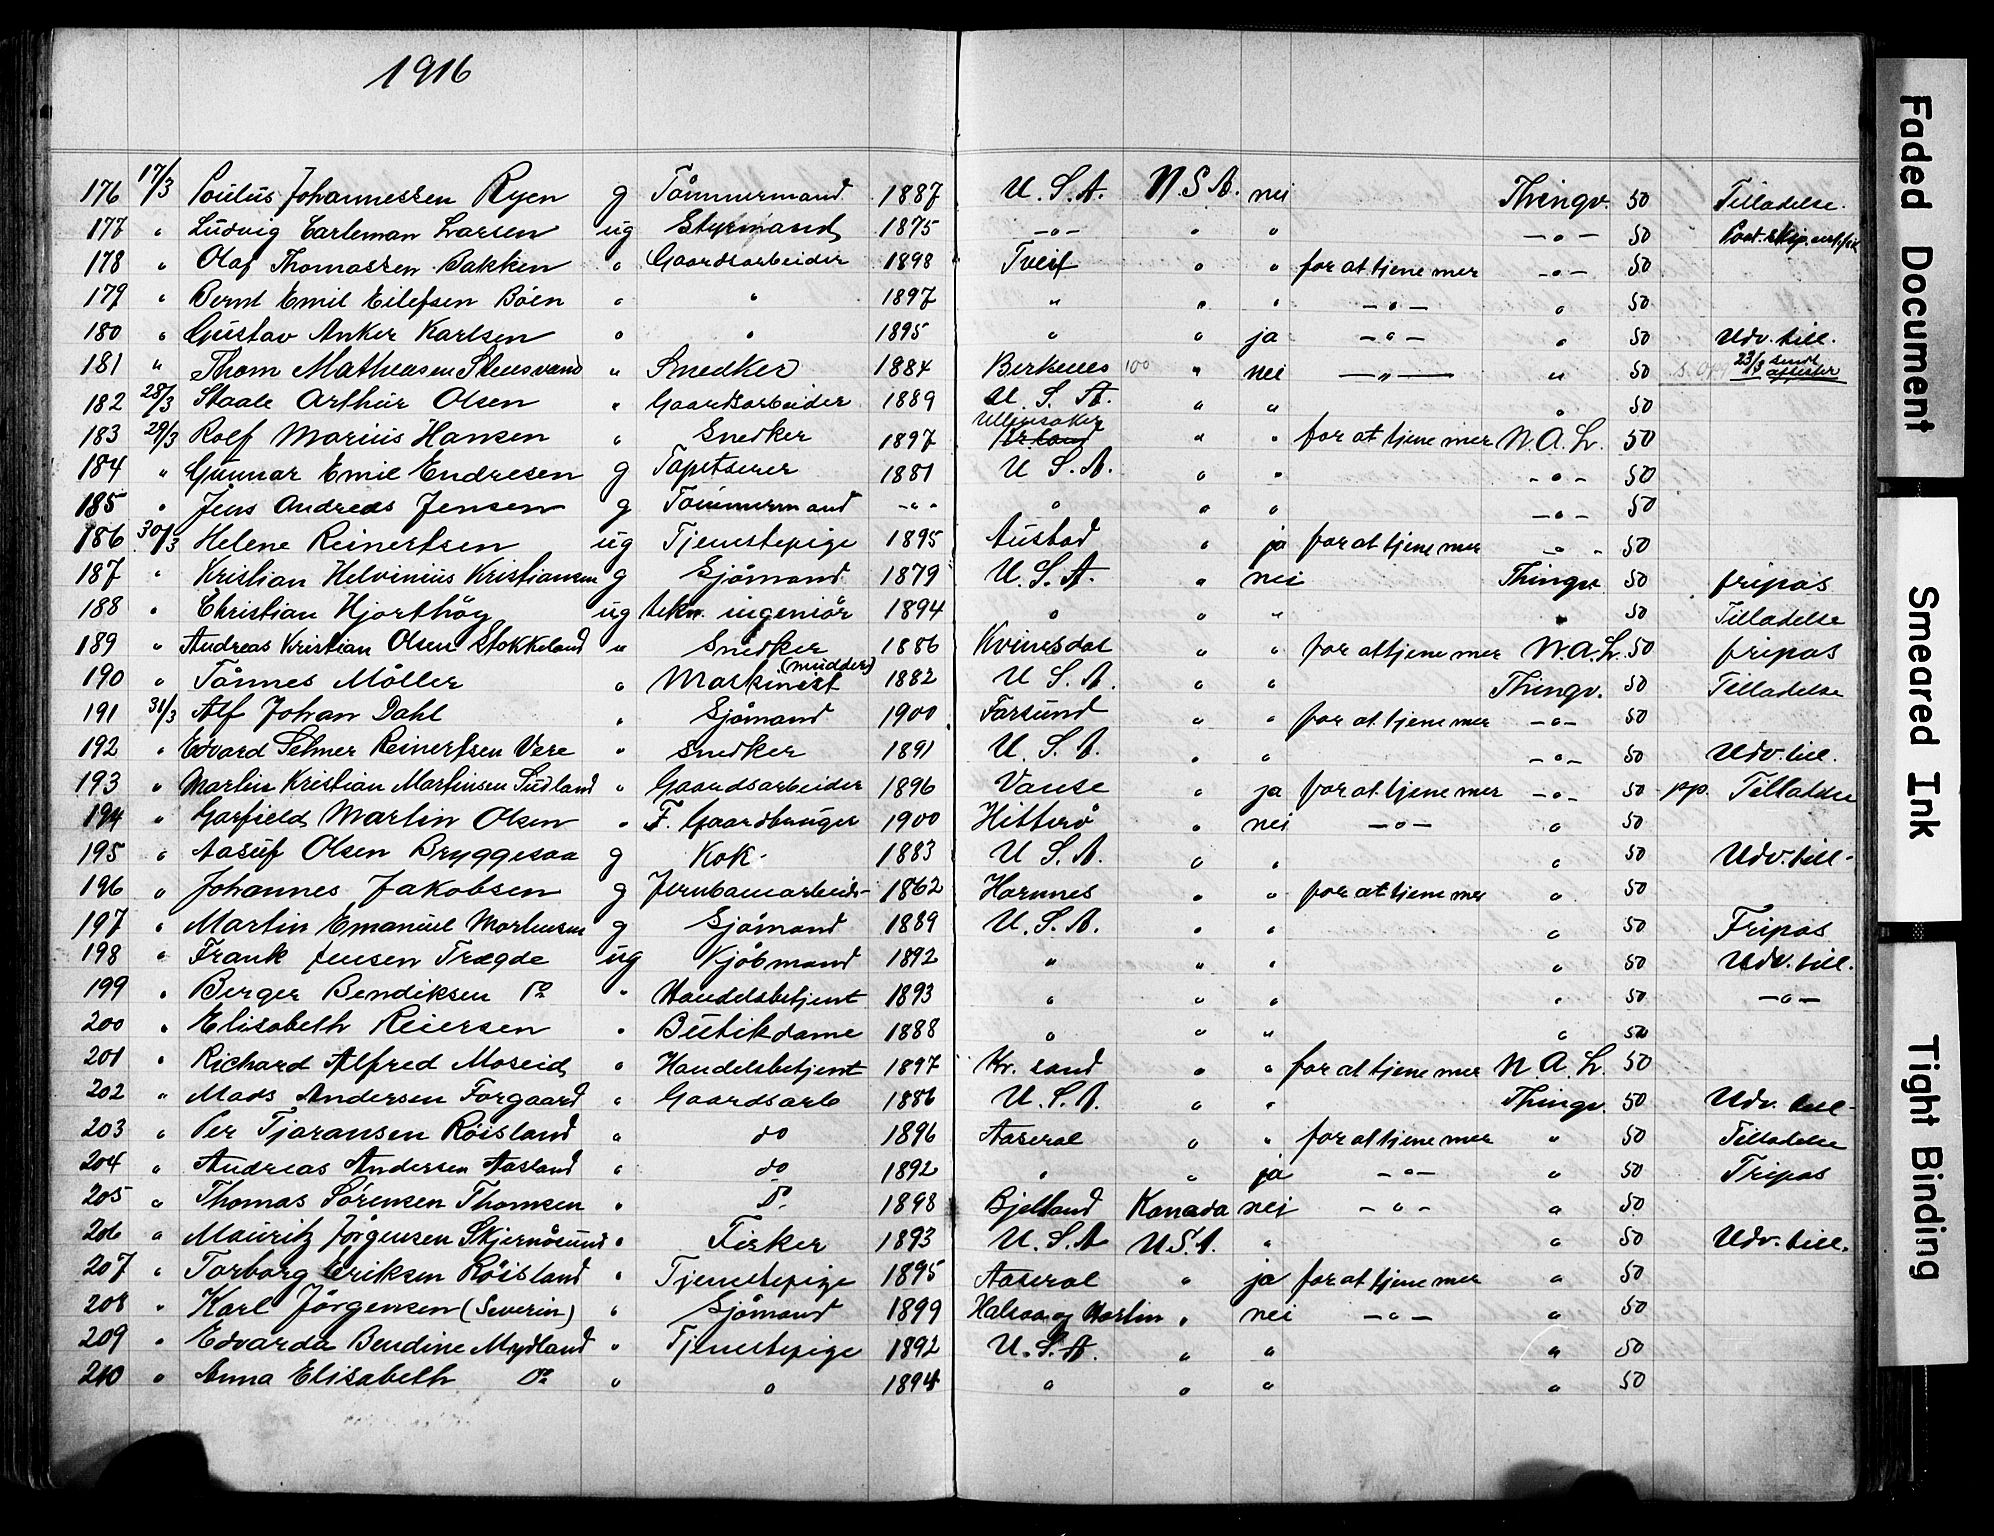 1916
176 17/3 Poulus Johannessen Ryen g Tömmermand 1887 U.S.A. U.S.A. nei Thingv. 50 Tilladelse.
177 " Ludvig Carleman Larsen ug Styrmand 1875 -"- " " -"- 50
178 " Olaf Thomassen Bakken " Gaardsarbeider 1898 Tveit " " for at tjene mer -"- 50
179 " Bernt Emil Eilefsen Böen " " 1897 " " " -"- " 50
180 " Gustav Anker Karlsen " " 1895 " " ja -"- " 50 Udv. till.
181 " Thom Matheasen Stensvand " Snedker 1884 Birkenes 100 " nei -"- " 50 23/3 sendt
182 28/3 Staale Arthur Olsen " Gaardsarbeider 1889 U.S.A. " " " 50
183 29/3 Rolf Marius Hansen " Snedker 1897 Ullensaker " " for at tjene mer N.A.L. 50
184 " Gunnar Emil Endresen g Tapetserer 1881 U.S.A. " " -"- 50
185 " Jens Andreas Jensen g Tömmermand -"- " " " -"- 50
186 30/3 Helene Reinertsen ug Tjenestepige 1895 Austad " ja for at tjene mer -"- 50
187 " Kristian Helvinius Kristiansen g Sjömand 1879 U.S.A. " nei Thingv. 50 fripas
188 " Christian Hjorthöy ug tekn. ingeniör 1894 " " " " 50 Tilladelse
189 " Andreas Kristian Olsen Stokkeland " Snedker 1886 Kvinesdal " " for at tjene mer N.A.L. 50 fripas
190 " Tönnes Möller " Maskinist (mudder) 1882 U.S.A. " " Thingv. 50 Tilladelse
191 31/3 Alf Johan Dahl " Sjömand 1900 Farsund " " for at tjene mer -"- 50
192 " Edvard Selmer Reinertsen Vere " Snedker 1891 U.S.A. " " -"- 50 Udv. till.
193 " Martin Kristian Martinsen Sudland " Gaardsarbeider 1896 Vanse " ja for at tjene mer -"- 50 pp. Tilladelse
194 " Garfield Martin Olsen " F. Gaardbruger 1900 Hitterö " nei -"- " 50
195 " Aasuf Olsen Bryggesaa g Kok 1883 U.S.A. " " " 50 Udv. till.
196 " Johannes Jakobsen g Jernbanearbeid- 1862 Harnnes " " for at tjene mer " 50
197 " Martin Emanuel Mortensen g Sjömand 1889 U.S.A. " " " 50 Fripas
198 " Frank Jensen Trægde ug Kjöbmand 1892 " " " " 50 Udv. till.
199 " Berger Bendiksen Do " Handelsbetjent 1893 " " " " 50 -"-
200 " Elisabeth Reiersen " Butikdame 1888 " " " " 50
201 " Richard Alfred Moseid " Handelsbetjent 1897 Kr. sand " " for at tjene mer N.A.L. 50
202 " Mads Andersen Forgaard " Gaardsarb 1886 U.S.A. " " Thingv. 50 Udv. till.
203 " Per Tjaransen Röisland " do 1896 Aaseral " " for at tjene mer " 50 Tilladelse
204 " Andreas Andersen Aasland " do 1892 " " ja -"- " 50 Fripas
205 " Thomas Sörensen Thomsen " Do 1898 Bjelland Kanada nei -"- " 50
206 " Mauritz Jörgensen Skjernösund " Fisker 1893 U.S.A U.S.A. " " 50 Udv. till.
207 " Torborg Eriksen Röisland " Tjenestepige 1895 Aaseral " ja for at tjene mer " 50
208 " Karl Jörgensen (Severin) " Sjömand 1899 Halsaa og Hartm " nei -"- " 50
209 " Edvarda Bendine Mydland " Tjenestepige 1892 U.S.A. " " " 50
210 " Anna Elisabeth Do " " 1894 " " " " 50
Faded Document
Smeared Ink
Tight Binding